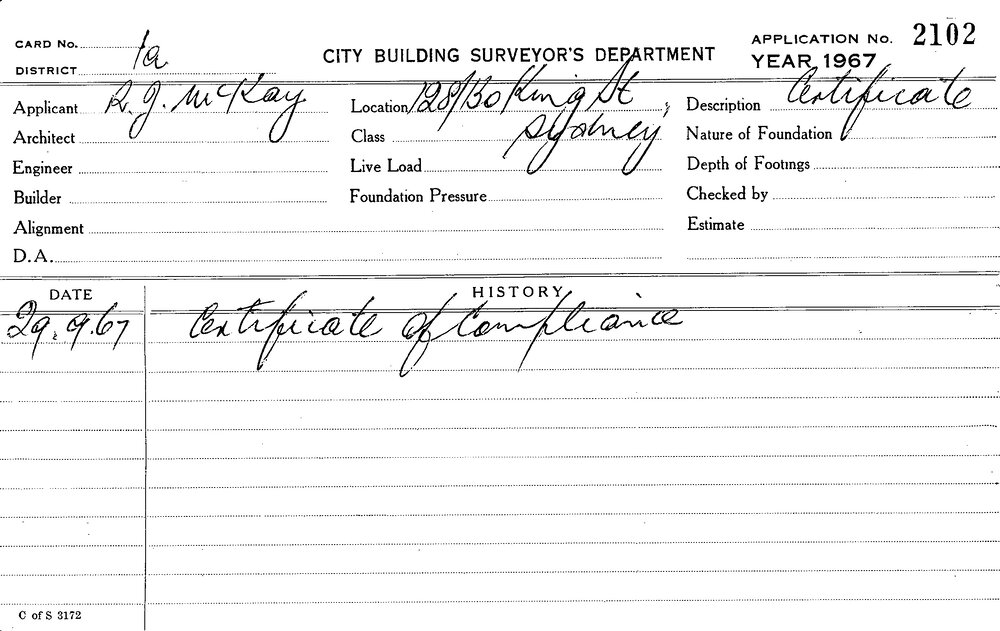 CARD No. 1a
DISTRICT
CITY BUILDING SURVEYOR'S DEPARTMENT
APPLICATION No. 2102
YEAR 1967
Applicant R. J. McKay
Location 128/130 King St, Sydney
Description Certificate
Architect
Class
Nature of Foundation
Engineer
Live Load
Depth of Footings
Builder
Foundation Pressure
Checked by
Alignment
Estimate
D.A.
DATE
HISTORY
29.9.67 Certificate of Compliance
C of S 3172